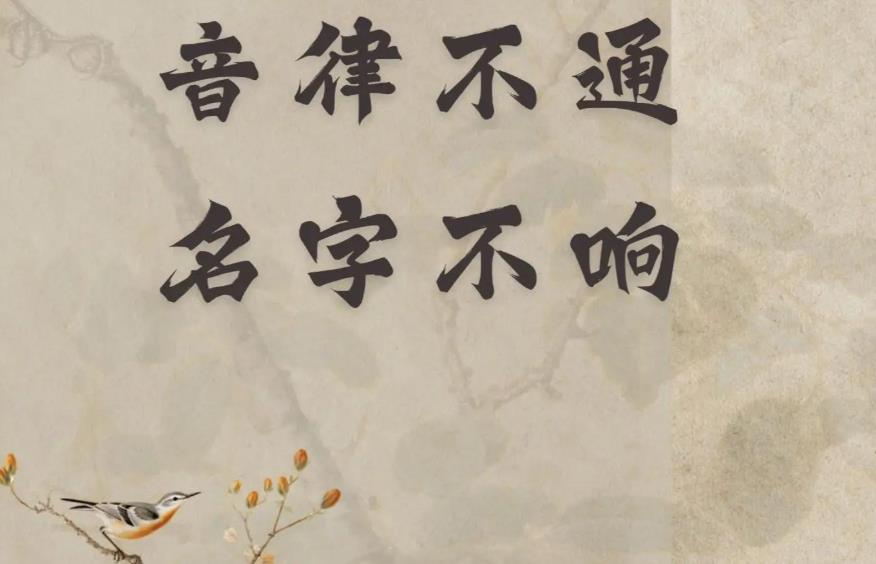 音律不通
名字不响